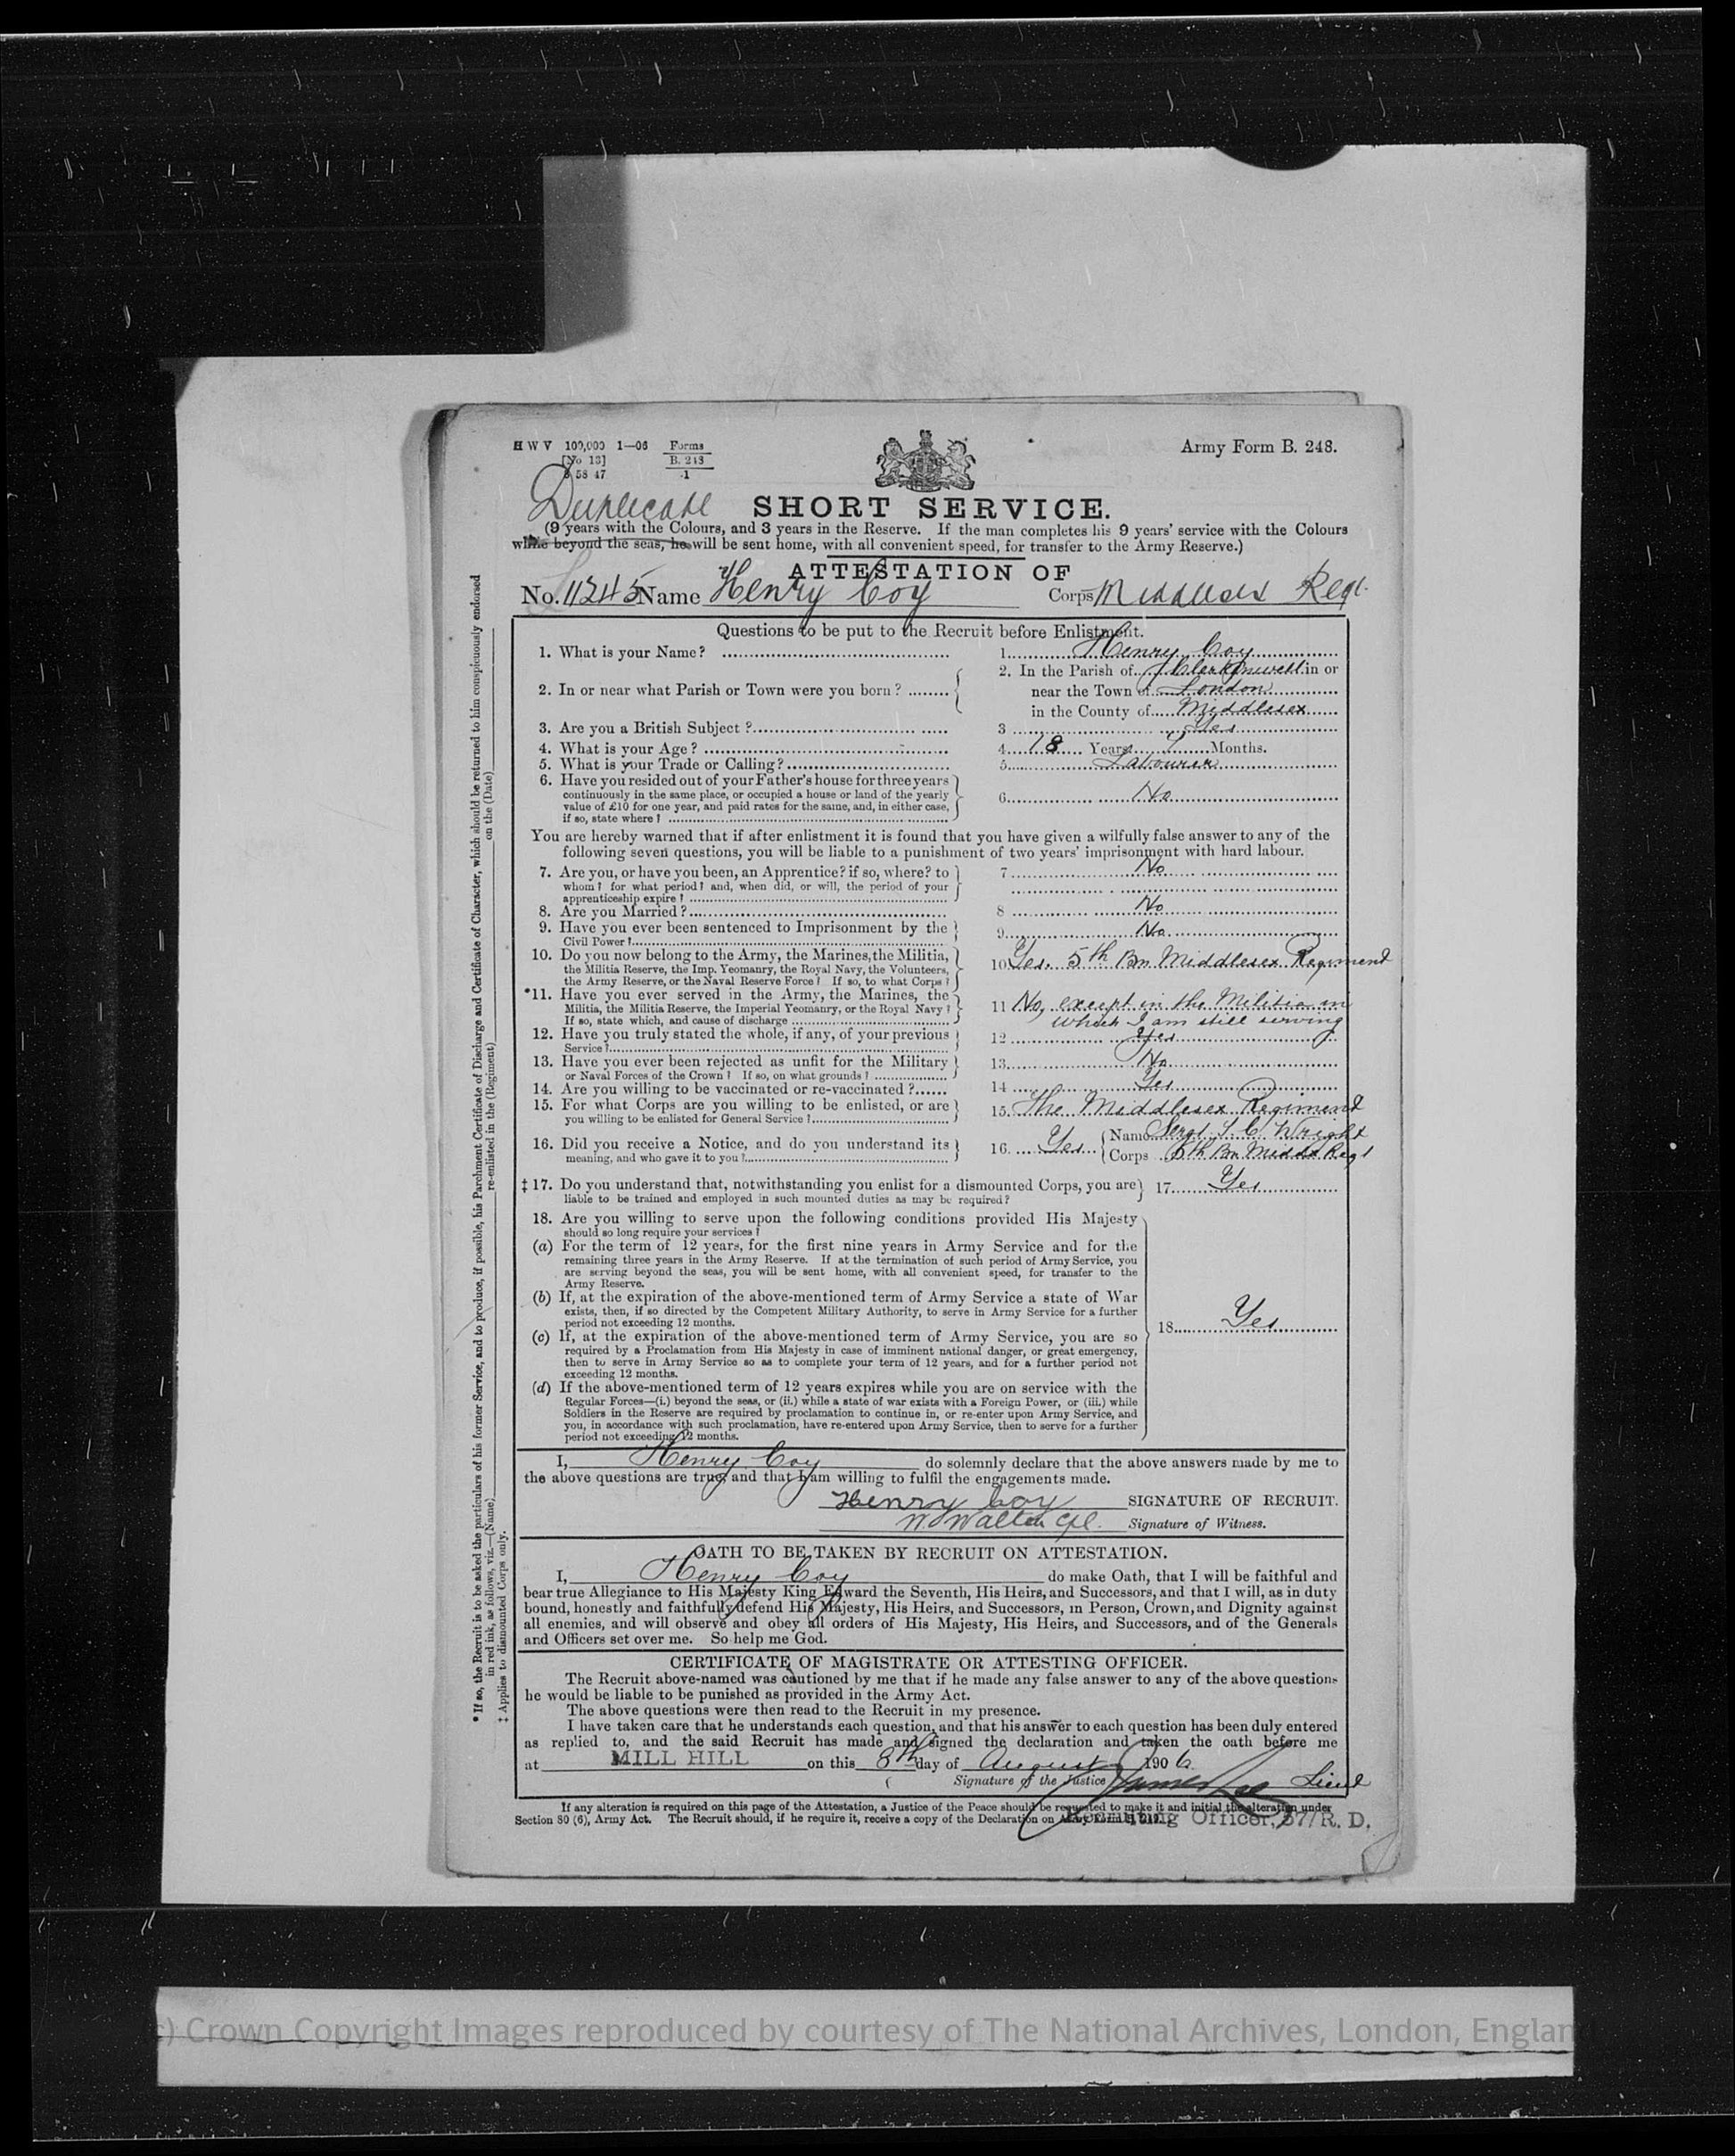 H W V 100,000 1—06 Forms
[No 13] B. 248
58 47 1
Army Form B. 248.
Duplicate
SHORT SERVICE.
(9 years with the Colours, and 3 years in the Reserve. If the man completes his 9 years' service with the Colours
while beyond the seas, he will be sent home, with all convenient speed, for transfer to the Army Reserve.)
ATTESTATION OF
No. 11245 Name Henry Coy Corps Middlesex Regt.
Questions to be put to the Recruit before Enlistment.
1. What is your Name? 1. Henry Coy
2. In or near what Parish or Town were you born? 2. In the Parish of Clerkenwell in or
near the Town of London
in the County of Middlesex
3. Are you a British Subject? 3 Yes
4. What is your Age? 4. 18 Years Months.
5. What is your Trade or Calling? 5. Labourer
6. Have you resided out of your Father's house for three years
continuously in the same place, or occupied a house or land of the yearly
value of £10 for one year, and paid rates for the same, and, in either case,
if so, state where? 6. No
You are hereby warned that if after enlistment it is found that you have given a wilfully false answer to any of the
following seven questions, you will be liable to a punishment of two years' imprisonment with hard labour.
7. Are you, or have you been, an Apprentice? if so, where? to 7. No
whom? for what period? and, when did, or will, the period of your
apprenticeship expire?
8. Are you Married? 8 No
9. Have you ever been sentenced to Imprisonment by the 9. No
Civil Power?
10. Do you now belong to the Army, the Marines, the Militia, 10 Yes. 5th Bn Middlesex Regiment
the Militia Reserve, the Imp. Yeomanry, the Royal Navy, the Volunteers,
the Army Reserve, or the Naval Reserve Force? If so, to what Corps?
*11. Have you ever served in the Army, the Marines, the 11 No, except in the Militia in
Militia, the Militia Reserve, the Imperial Yeomanry, or the Royal Navy? which I am still serving
If so, state which, and cause of discharge
12. Have you truly stated the whole, if any, of your previous 12 Yes
Service?
13. Have you ever been rejected as unfit for the Military 13. No
or Naval Forces of the Crown? If so, on what grounds?
14. Are you willing to be vaccinated or re-vaccinated? 14 Yes
15. For what Corps are you willing to be enlisted, or are 15. The Middlesex Regiment
you willing to be enlisted for General Service?
16. Did you receive a Notice, and do you understand its 16. Yes Name Sergt Wright
meaning, and who gave it to you? Corps Bn Middx Regt
‡ 17. Do you understand that, notwithstanding you enlist for a dismounted Corps, you are 17. Yes
liable to be trained and employed in such mounted duties as may be required?
18. Are you willing to serve upon the following conditions provided His Majesty
should so long require your services?
(a) For the term of 12 years, for the first nine years in Army Service and for the
remaining three years in the Army Reserve. If at the termination of such period of Army Service, you
are serving beyond the seas, you will be sent home, with all convenient speed, for transfer to the
Army Reserve.
(b) If, at the expiration of the above-mentioned term of Army Service a state of War
exists, then, if so directed by the Competent Military Authority, to serve in Army Service for a further
period not exceeding 12 months.
18. Yes
(c) If, at the expiration of the above-mentioned term of Army Service, you are so
required by a Proclamation from His Majesty in case of imminent national danger, or great emergency,
then to serve in Army Service so as to complete your term of 12 years, and for a further period not
exceeding 12 months.
(d) If the above-mentioned term of 12 years expires while you are on service with the
Regular Forces—(i.) beyond the seas, or (ii.) while a state of war exists with a Foreign Power, or (iii.) while
Soldiers in the Reserve are required by proclamation to continue in, or re-enter upon Army Service, and
you, in accordance with such proclamation, have re-entered upon Army Service, then to serve for a further
period not exceeding 12 months.
I, Henry Coy do solemnly declare that the above answers made by me to
the above questions are true, and that I am willing to fulfil the engagements made.
Henry Coy SIGNATURE OF RECRUIT.
W Walton Cpl. Signature of Witness.
OATH TO BE TAKEN BY RECRUIT ON ATTESTATION.
I, Henry Coy do make Oath, that I will be faithful and
bear true Allegiance to His Majesty King Edward the Seventh, His Heirs, and Successors, and that I will, as in duty
bound, honestly and faithfully defend His Majesty, His Heirs, and Successors, in Person, Crown, and Dignity against
all enemies, and will observe and obey all orders of His Majesty, His Heirs, and Successors, and of the Generals
and Officers set over me. So help me God.
CERTIFICATE OF MAGISTRATE OR ATTESTING OFFICER.
The Recruit above-named was cautioned by me that if he made any false answer to any of the above questions
he would be liable to be punished as provided in the Army Act.
The above questions were then read to the Recruit in my presence.
I have taken care that he understands each question, and that his answer to each question has been duly entered
as replied to, and the said Recruit has made and signed the declaration and taken the oath before me
at MILL HILL on this 8th day of August 1906
Signature of the Justice James Lee Lieut
If any alteration is required on this page of the Attestation, a Justice of the Peace should be requested to make it and initial the alteration under
Section 80 (6), Army Act. The Recruit should, if he require it, receive a copy of the Declaration on Army Form
Recruiting Officer, 57/R. D.
* If so, the Recruit is to be asked the particulars of his former Service, and to produce, if possible, his Parchment Certificate of Discharge and Certificate of Character, which should be returned to him conspicuously endorsed
in red ink, as follows, viz.—(Name) re-enlisted in the (Regiment) on the (Date)
‡ Applies to dismounted Corps only.
) Crown Copyright Images reproduced by courtesy of The National Archives, London, England